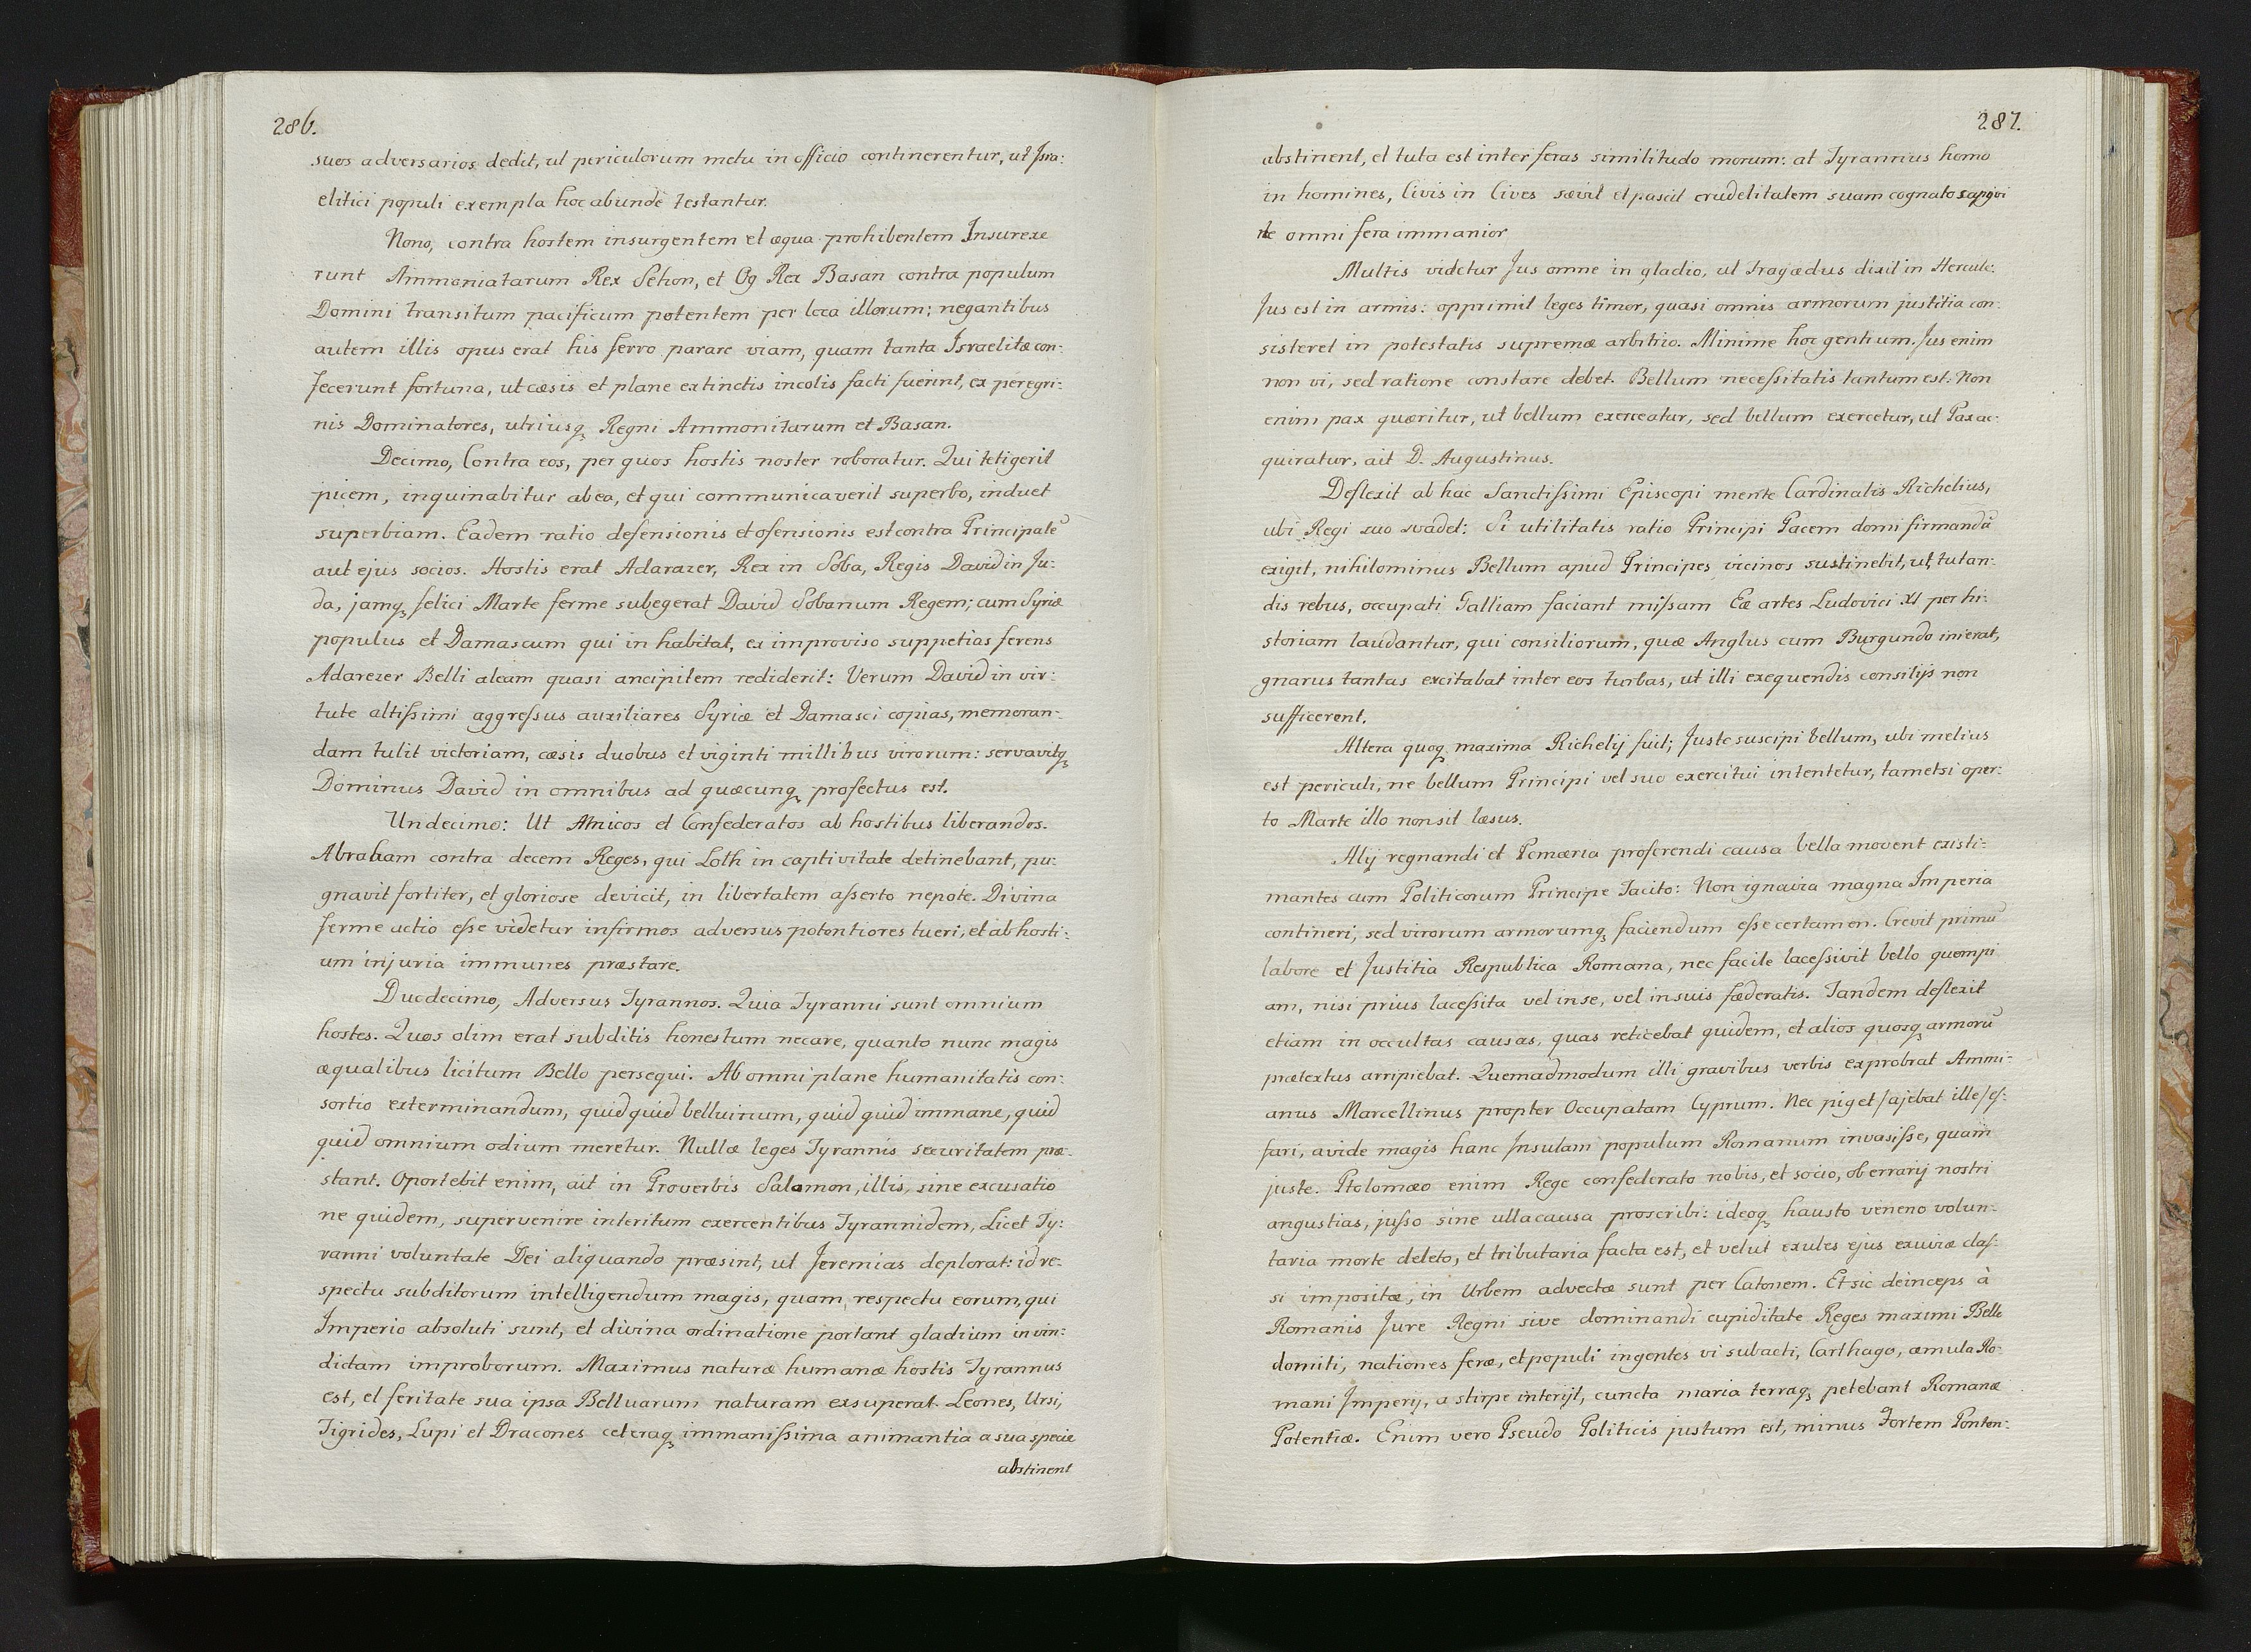 286.
suos adversarios dedit, ut periculorum metu in officio continerentur, ut Jsra:
elitici populi exempla hoc abunde testantur.
Nono, contra hostem insurgentem et æqua prohibentem Insurexe
runt Ammoniatarum Rex Sehon, et Og Rex Basan contra populum
Domini transitum pacificum potentem per loca illorum; negantibus
autem illis opus erat his ferro parare viam, quam tanta Israelitæ con:
fecerunt fortuna, ut cæsis et plane extinctis incolis facti fuerint, ex peregri:
nis Dominatores, utriusq Regni Ammonitarum et Basan.
Decimo, Contra eos, per quos hostis noster roboratur. Qui tetigerit
picem, inquinabitur ab ea, et qui communicaverit superbo, induet
superbiam. Eadem ratio defensionis et ofensionis est contra Principale
aut ejus socios. Hostis erat Adarazer, Rex in Soba, Regis David in Ju:
da, jamq felici Marte ferme subegerat David Sobanum Regem; cum Syriæ
populus et Damascum qui in habitat, ex improviso suppetias ferens
Adarezer Belli aleam quasi ancipitem rediderit: Verum David in vir:
tute altissimi aggressus auxiliares Syriæ et Damasci copias, memoran:
dam tulit victoriam, cæsis duobus et viginti millibus virorum: servavitq
Dominus David in omnibus ad quæcunq profectus est.
Undecimo: Ut Amicos et Confederatos ab hostibus liberandos.
Abraham contra decem Reges, qui Loth in captivitate detinebant, pu:
gnavit fortiter, et gloriose devicit, in libertatem asserto nepote. Divina
ferme actio esse videtur infirmos adversus potentiores tueri, et ab hosti:
um injuria immunes præstare.
Duodecimo, Adversus Tyrannos. Quia Tyranni sunt omnium
hostes. Quos olim erat subditis honestum necare, quanto nunc magis
æqualibus licitum Bello persequi. Ab omni plane humanitatis con:
sortio exterminandum, quid quid belluinum, quid quid immane, quid
quid omnium odium meretur. Nullæ leges Tyrannis securitatem præ:
stant. Oportebit enim, ait in Proverbis Salomon, illis, sine excusatio
ne quidem, supervenire interitum exercentibus Tyrannidem, Licet Ty:
ranni voluntate Dei aliquando præsint, ut Jeremias deplorat: id re:
spectu subditorum intelligendum magis, quam respectu eorum, qui
Imperio absoluti sunt, et divina ordinatione portant gladium in vin:
dictam improborum. Maximus naturæ humanæ hostis Tyrannus
est, et feritate sua ipsa Belluarum naturam exsuperat. Leones, Ursi,
Tigrides, Lupi et Dracones ceteraq immanissima animantia a sua specie
abstinent
287.
abstinent, et tuta est inter feras similitudo morum: at Tyrannus homo
in homines, Civis in Cives sævit et pascit crudelitatem suam cognato
omni fera immanior
Multis videtur Jus omne in gladio, ut tragædus dixit in Hercule.
Jus est in armis: opprimit leges timor, quasi omnis armorum justitia con:
sisteret in potestatis supremæ arbitrio. Minime hoc gentium. Jus enim
non vi, sed ratione constare debet. Bellum necessitatis tantum est: Non
enim pax quæritur, ut bellum exerceatur, sed bellum exercetur, ut Pax ac:
quiratur, ait D. Augustinus.
Deflexit ab hac Sanctissimi Episcopi mente Cardinalis Richelius,
ubi Regi suo svadet: Si utilitatis ratio Principi Pacem domi firmandã
exigit, nihilominus Bellum apud Principes vicinos sustinebit, ut, tutan:
dis rebus, occupati Galliam faciant missam Eæ artes Ludovici XI per hi:
storiam laudantur, qui consiliorum, quæ Anglus cum Burgundo inierat,
gnarus tantas excitabat inter eos turbas, ut illi exequendis consilijs non
sufficerent.
Altera quoq maxima Richelij fuit; Juste suscipi bellum, ubi melius
est periculi, ne bellum Principi vel suo exercitui intentetur, tametsi oper:
to Marte illo non sit læsus.
Alij regnandi et Pomæria proferendi causa bella movent existi:
mantes cum Politicorum Principe Tacito: Non ignavia magna Imperia
contineri, sed virorum armorumq faciendum esse certamen. Crevit primũ
labore et Justitia Respublica Romana, nec facile lacessivit bello quempi
am, nisi prius lacessita vel in se, vel in suis fæderatis. Tandem deflexit
etiam in occultas causas, quas reticebat quidem, et alios quosq armorũ
prætextus arripiebat. Quemadmodum illi gravibus verbis exprobrat Ammi:
anus Marcellinus propter Occupatam Cyprum. Nec piget /ajebat ille/ es:
fari, avide magis hanc Insulam populum Romanum invasisse, quam
juste. Ptolomæo enim Rege confederato nobis, et socio, ob errarij nostri
angustias, jusso sine ulla causa proscribi: ideoq hausto veneno volun:
taria morte deleto, et tributaria facta est, et velut exules ejus exuviæ clas:
si impositæ, in Urbem advectæ sunt per Catonem. Et sic deinceps à
Romanis Jure Regni sive dominandi cupiditate Reges maximi Bello
domiti, nationes feræ, et populi ingentes vi subacti, Carthago, æmula Ro:
mani Imperij, a stirpe interijt, cuncta maria terraq petebant Romanæ
Potentiæ. Enim vero Pseudo Politicis justum est, minus Fortem Ponten: